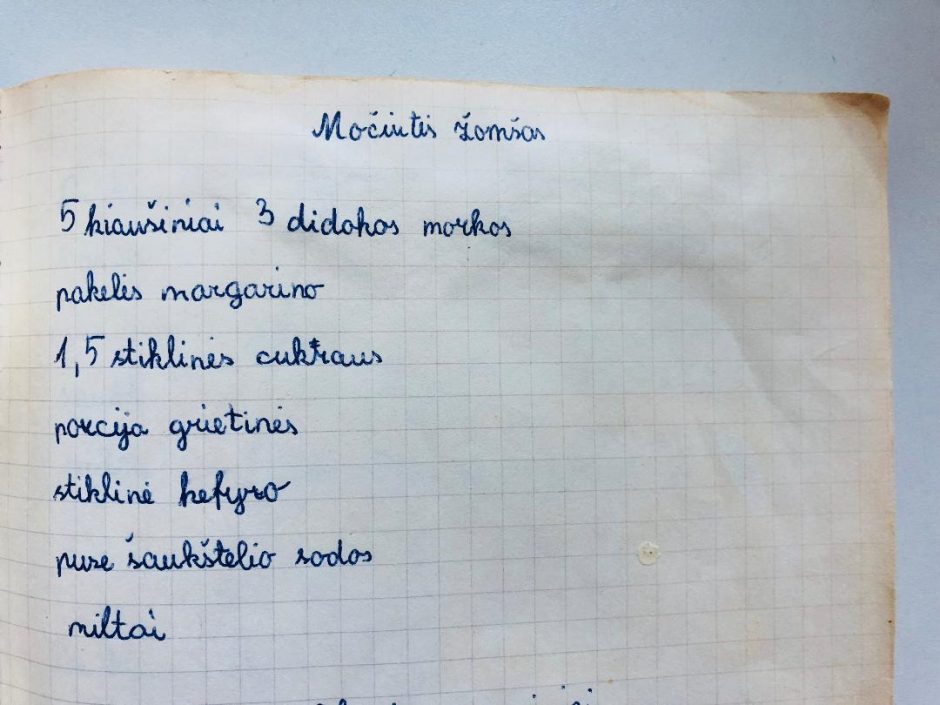 Močiutės žomšas
5 kiaušiniai 3 didokos morkos
pakelis margarino
1,5 stiklinės cukraus
porcija grietinės
stiklinė kefyro
puse šaukštelio sodos
miltai